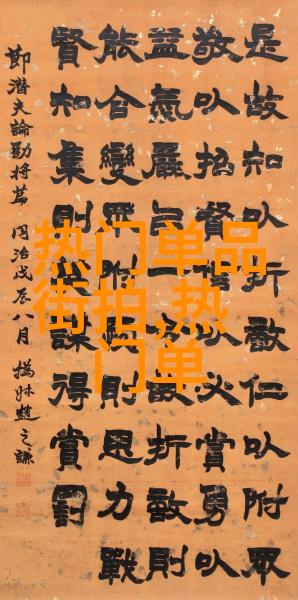 是故知以折敵仁以附眾
敬以招賢信以必賞勇以
益氣嚴以一令故折敵則
能合變眾附則思力戰
賢知集則謀得賞罰
節潛夫論勸將篇 同治戊辰八月 撝叔趙之謙
热门单品
街拍,热
门单